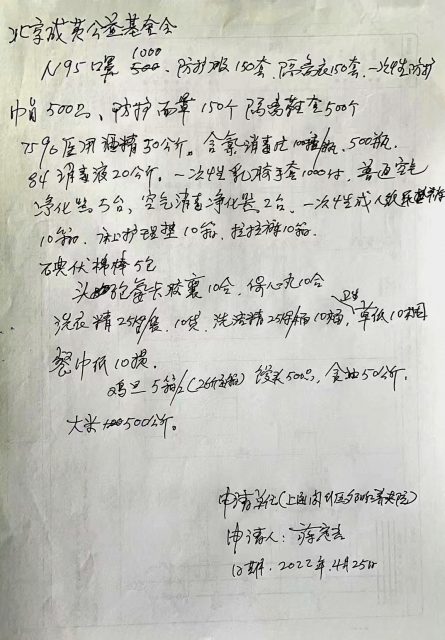 北京成美公益基金会
1000
N95口罩 500. 防护服150套. 隔离衣150套. 一次性防护
巾肩500只、防护面罩150个 隔离鞋套500个
75%医用酒精50公斤. 含氯消毒片100粒/瓶, 500瓶.
84消毒液20公斤. 一次性乳胶手套1000付. 普通空气
净化器5台. 空气消毒净化器2台. 一次性成人
10箱. 床上护理垫10箱. 拉拉裤10箱.
碘伏棉棒5包
头孢 胶囊10合. 保心丸10合
卫生
洗衣精25 /袋, 10袋. 洗洁精25 /桶10桶, 草纸10箱
餐巾纸10
鸡旦5箱/ 馒头500只, 食油50公斤.
大米 500公斤。
申请单位(上海闵行区 养老院)
申请人:
日期: 2022年.4月25日